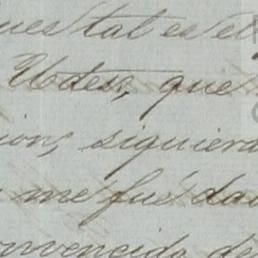 ues tal es el
Udes, que
ion, siguiera
me fué da
onvencido de